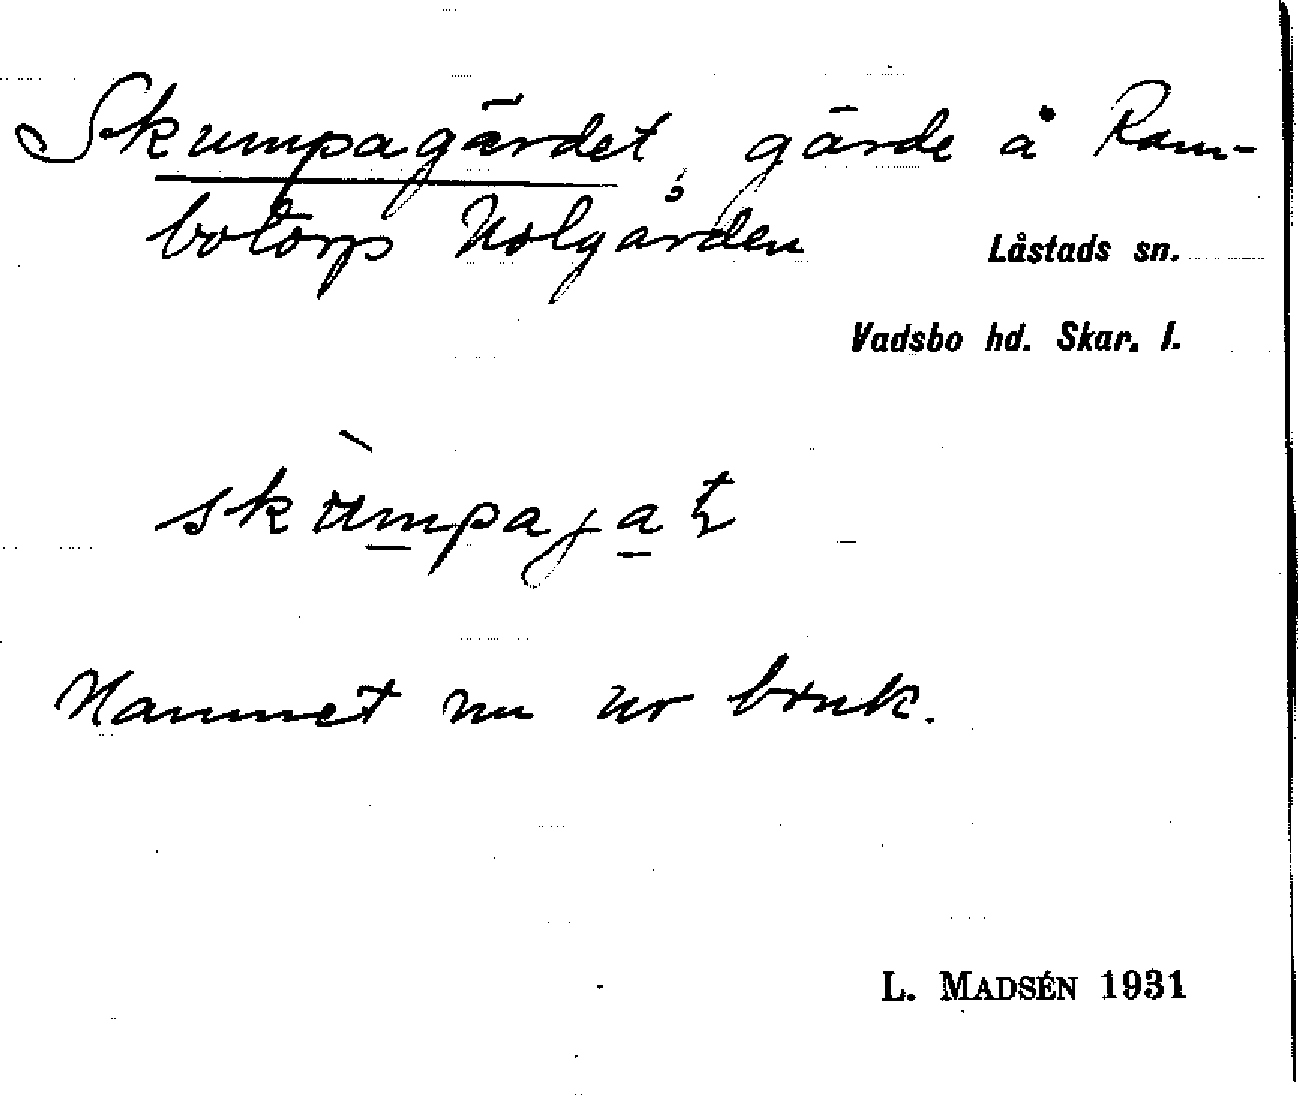 Skumpagärdet, gärde å Ram-
botorp Nolgården
Låstads sn.
Vadsbo hd. Skar. l.
Namnet nu ur bruk.
L. MADSÉN 1931